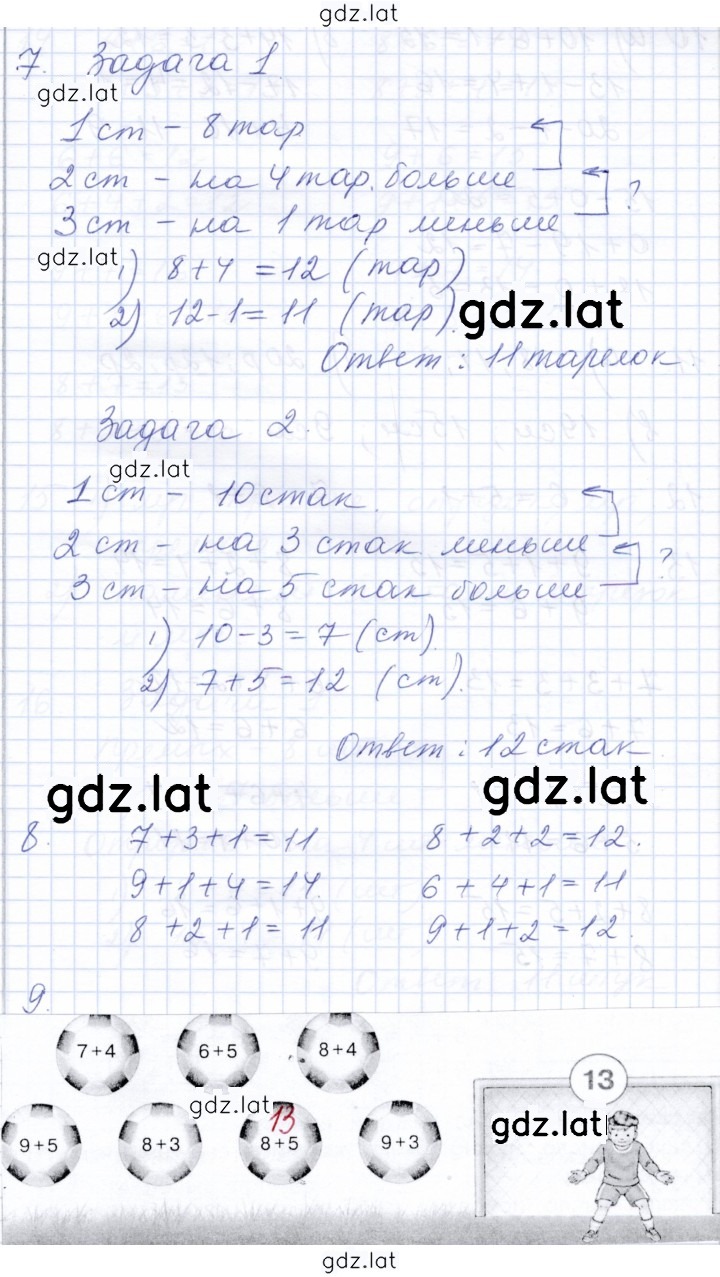 gdz.lat
7. Задача 1
gdz.lat
1 ст – 8 тар
2 ст – на 4 тар. больше
3 ст – на 1 тар меньше ?
gdz.lat
1) 8+4 = 12 (тар)
2) 12-1 = 11 (тар).
gdz.lat
Ответ: 11 тарелок.
Задача 2.
gdz.lat
1 ст – 10 стак.
2 ст – на 3 стак меньше
3 ст – на 5 стак больше ?
1) 10-3=7 (ст).
2) 7+5=12 (ст).
Ответ: 12 стак
gdz.lat gdz.lat
8. 7+3+1=11 8+2+2=12.
9+1+4=14. 6+4+1=11
8+2+1=11 9+1+2=12.
9.
7+4 6+5 8+4
13
gdz.lat
13
gdz.lat
9+5 8+3 8+5 9+3
gdz.lat